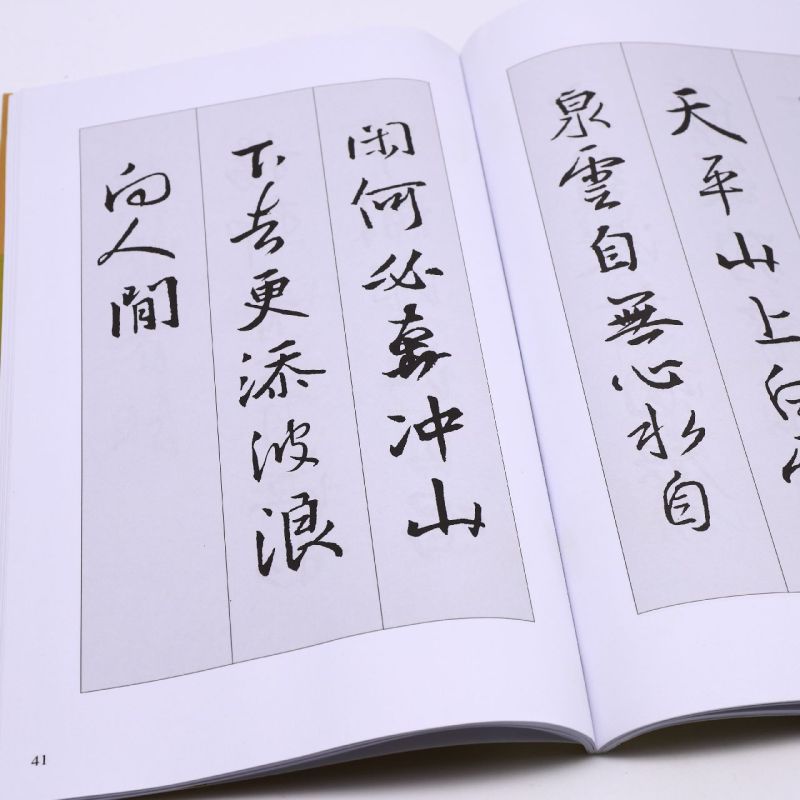 天平山上白
泉雲自無心水自
闲何必奔冲山
下去更添波浪
向人間
41